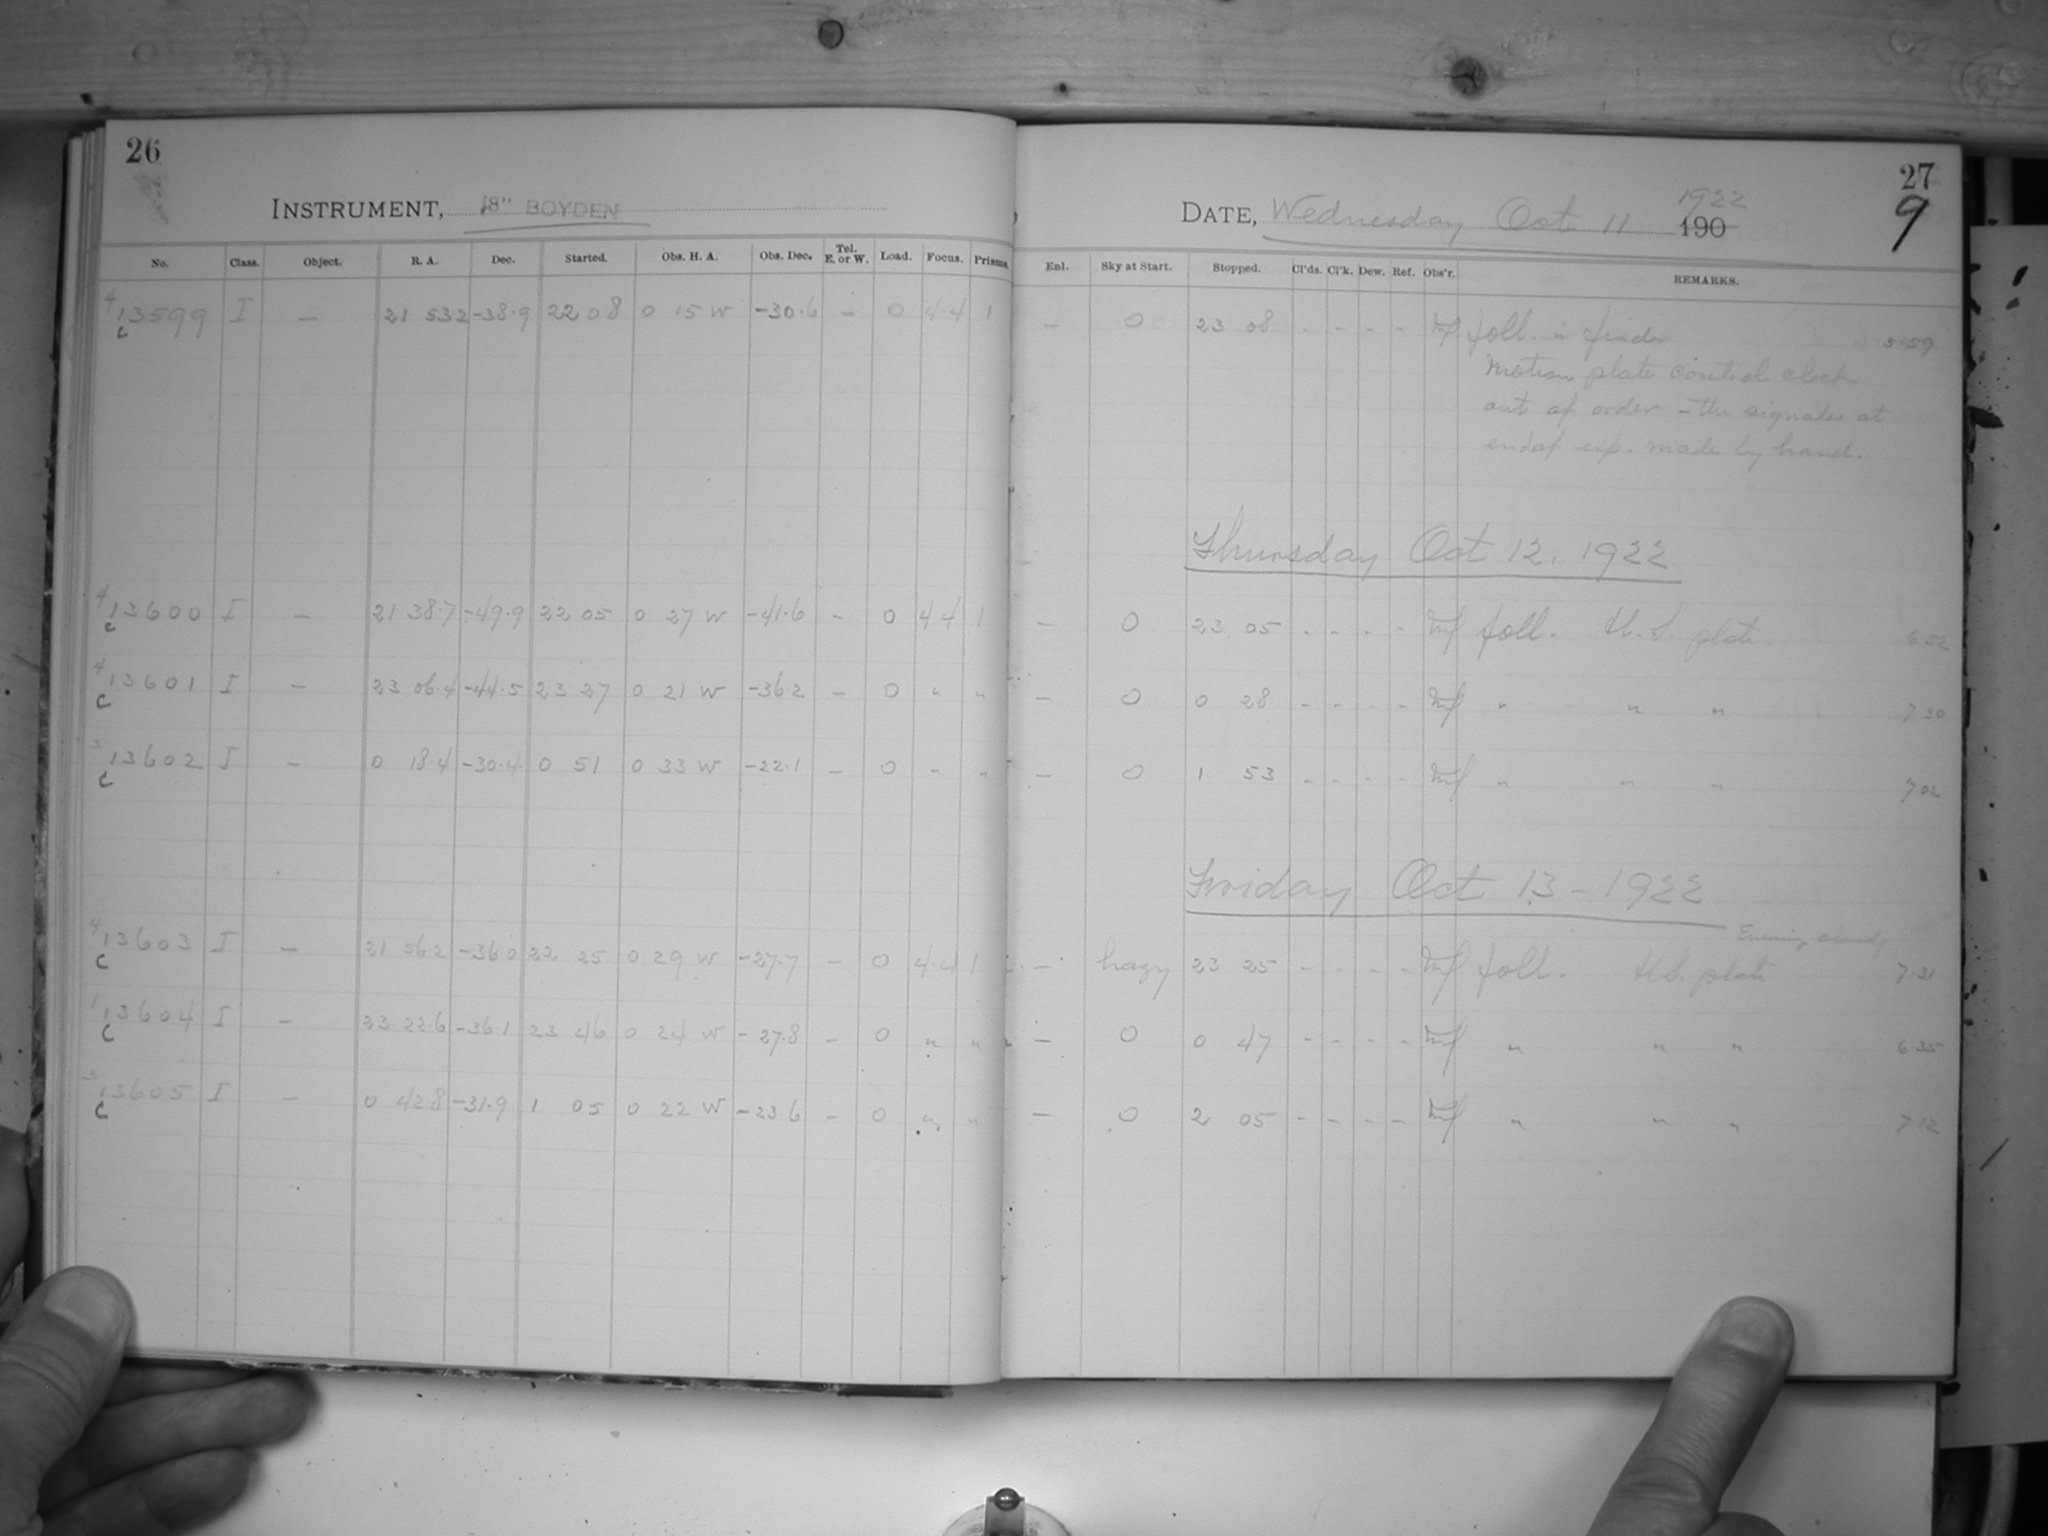 26
INSTRUMENT, 8" BOYDEN
No. Class. Object. R. A. Dec. Started. Obs. H. A. Obs. Dec. Tel. E. or W. Load. Focus. Prisms.
4 13599 I — 21 53.2 -38.9 22 08 0 15 W -30.6 — 0 4.4 1
c
4 13600 I — 21 38.7 -49.9 22 05 0 27 W -41.6 - 0 4.4 1
c
4 13601 I — 23 06.4 -44.5 23 27 0 21 W -36.2 - 0 " "
c
3 13602 I — 0 18.4 -30.4 0 51 0 33 W -22.1 - 0 " "
c
4 13603 I — 21 56.2 -36.0 22 25 0 29 W -27.7 - 0 4.4 1
c
1 13604 I — 23 22.6 -36.1 23 46 0 24 W -27.8 - 0 " "
c
3 13605 I — 0 42.8 -31.9 1 05 0 22 W -23.6 - 0 " "
c
27
9
DATE, Wednesday Oct. 11 1922
190
Enl. Sky at Start. Stopped. Cl'ds. Cl'k. Dew. Ref. Obs'r. REMARKS.
— 0 23 08 - - - - foll. in finder 5.59
Motion plate control clock
out of order - the signales at
end of exp. made by hand.
Thursday Oct 12. 1922
— 0 23 05 - - - - foll. plate. 6.52
— 0 0 28 - - - - " " " 7.30
— 0 1 53 - - - - " " " 7.02
Friday Oct 13 - 1922
Evening cloudy
— hazy 23 25 - - - - foll. plate 7.31
— 0 0 47 - - - - " " " 6.35
— 0 2 05 - - - - " " " 7.12